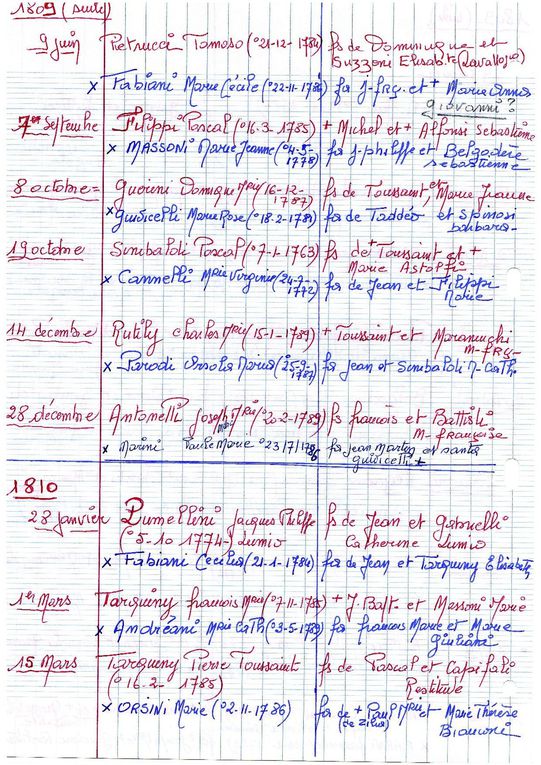 1809 (suite)
9 juin Pietrucci Tomaso (°21-12-1784) fs de Dominique et
Suzzoni Elisabte (Lavatoggio)
x Fabiani Marie Cécile (°22-11-1786) fa j-frs. et + Marie Anna
giovanni?
7 septembre Filippi Pascal (°16-3-1785) + Michel et + Alfonsi Sebastienne
x MASSONI Marie Jeanne (°4-5-1778) fa j-philippe et Belgodère
sebastienne
8 octobre = Guerini Domique Mrie (16-12-1787) fs de Toussaint et Marie Jeanne
x Guidicelli Marie Rose (°18-2-1789) fa de Taddéo et Spinosi
barbara-
19 octobre Sinibaldi Pascal (°7-1-1763) fs de + Toussaint et +
Marie Astolfi
x Cannelli Mrie Virginie (24-7-1772) fa de Jean et Filippi
Marie
14 décembre Rutily charles Mrie (15-1-1789) + Toussaint et Maraninchi
M-frs-
x Parodi Orsola Maria (°25-9-1787) fa Jean et Sinibaldi M-Cath.
28 décembre Antonelli Joseph Mrie (°20-2-1789) fs francois et Battisti
M-françoise
x Marini Paule Marie °23/7/1786 fa Jean Martin et santa
guidicelli +
1810
28 janvier Lumellini Jacques Philippe fs de Jean et gabrielli
(°5-10 1774-) Lumio Catherine Lumio
x Fabiani Cecilia (21-1-1784) fa de Jean et Tarquiny Elisabeth
1er Mars Tarquiny francois Mrie (°7-11-1785) + J. Bat. et Massoni Marie
x Andréani Mrie Cath (°3-5-1789) fa francois Marie et Marie
Giuliani
15 Mars Tarquiny Pierre Toussaint fs de Pascal et Capifali
(°16-2-1785) Restitude
x ORSINI Marie (°2-11-1786) fa de + Paul Mrie et Marie Thérèse
(de Zilia) Bianconi